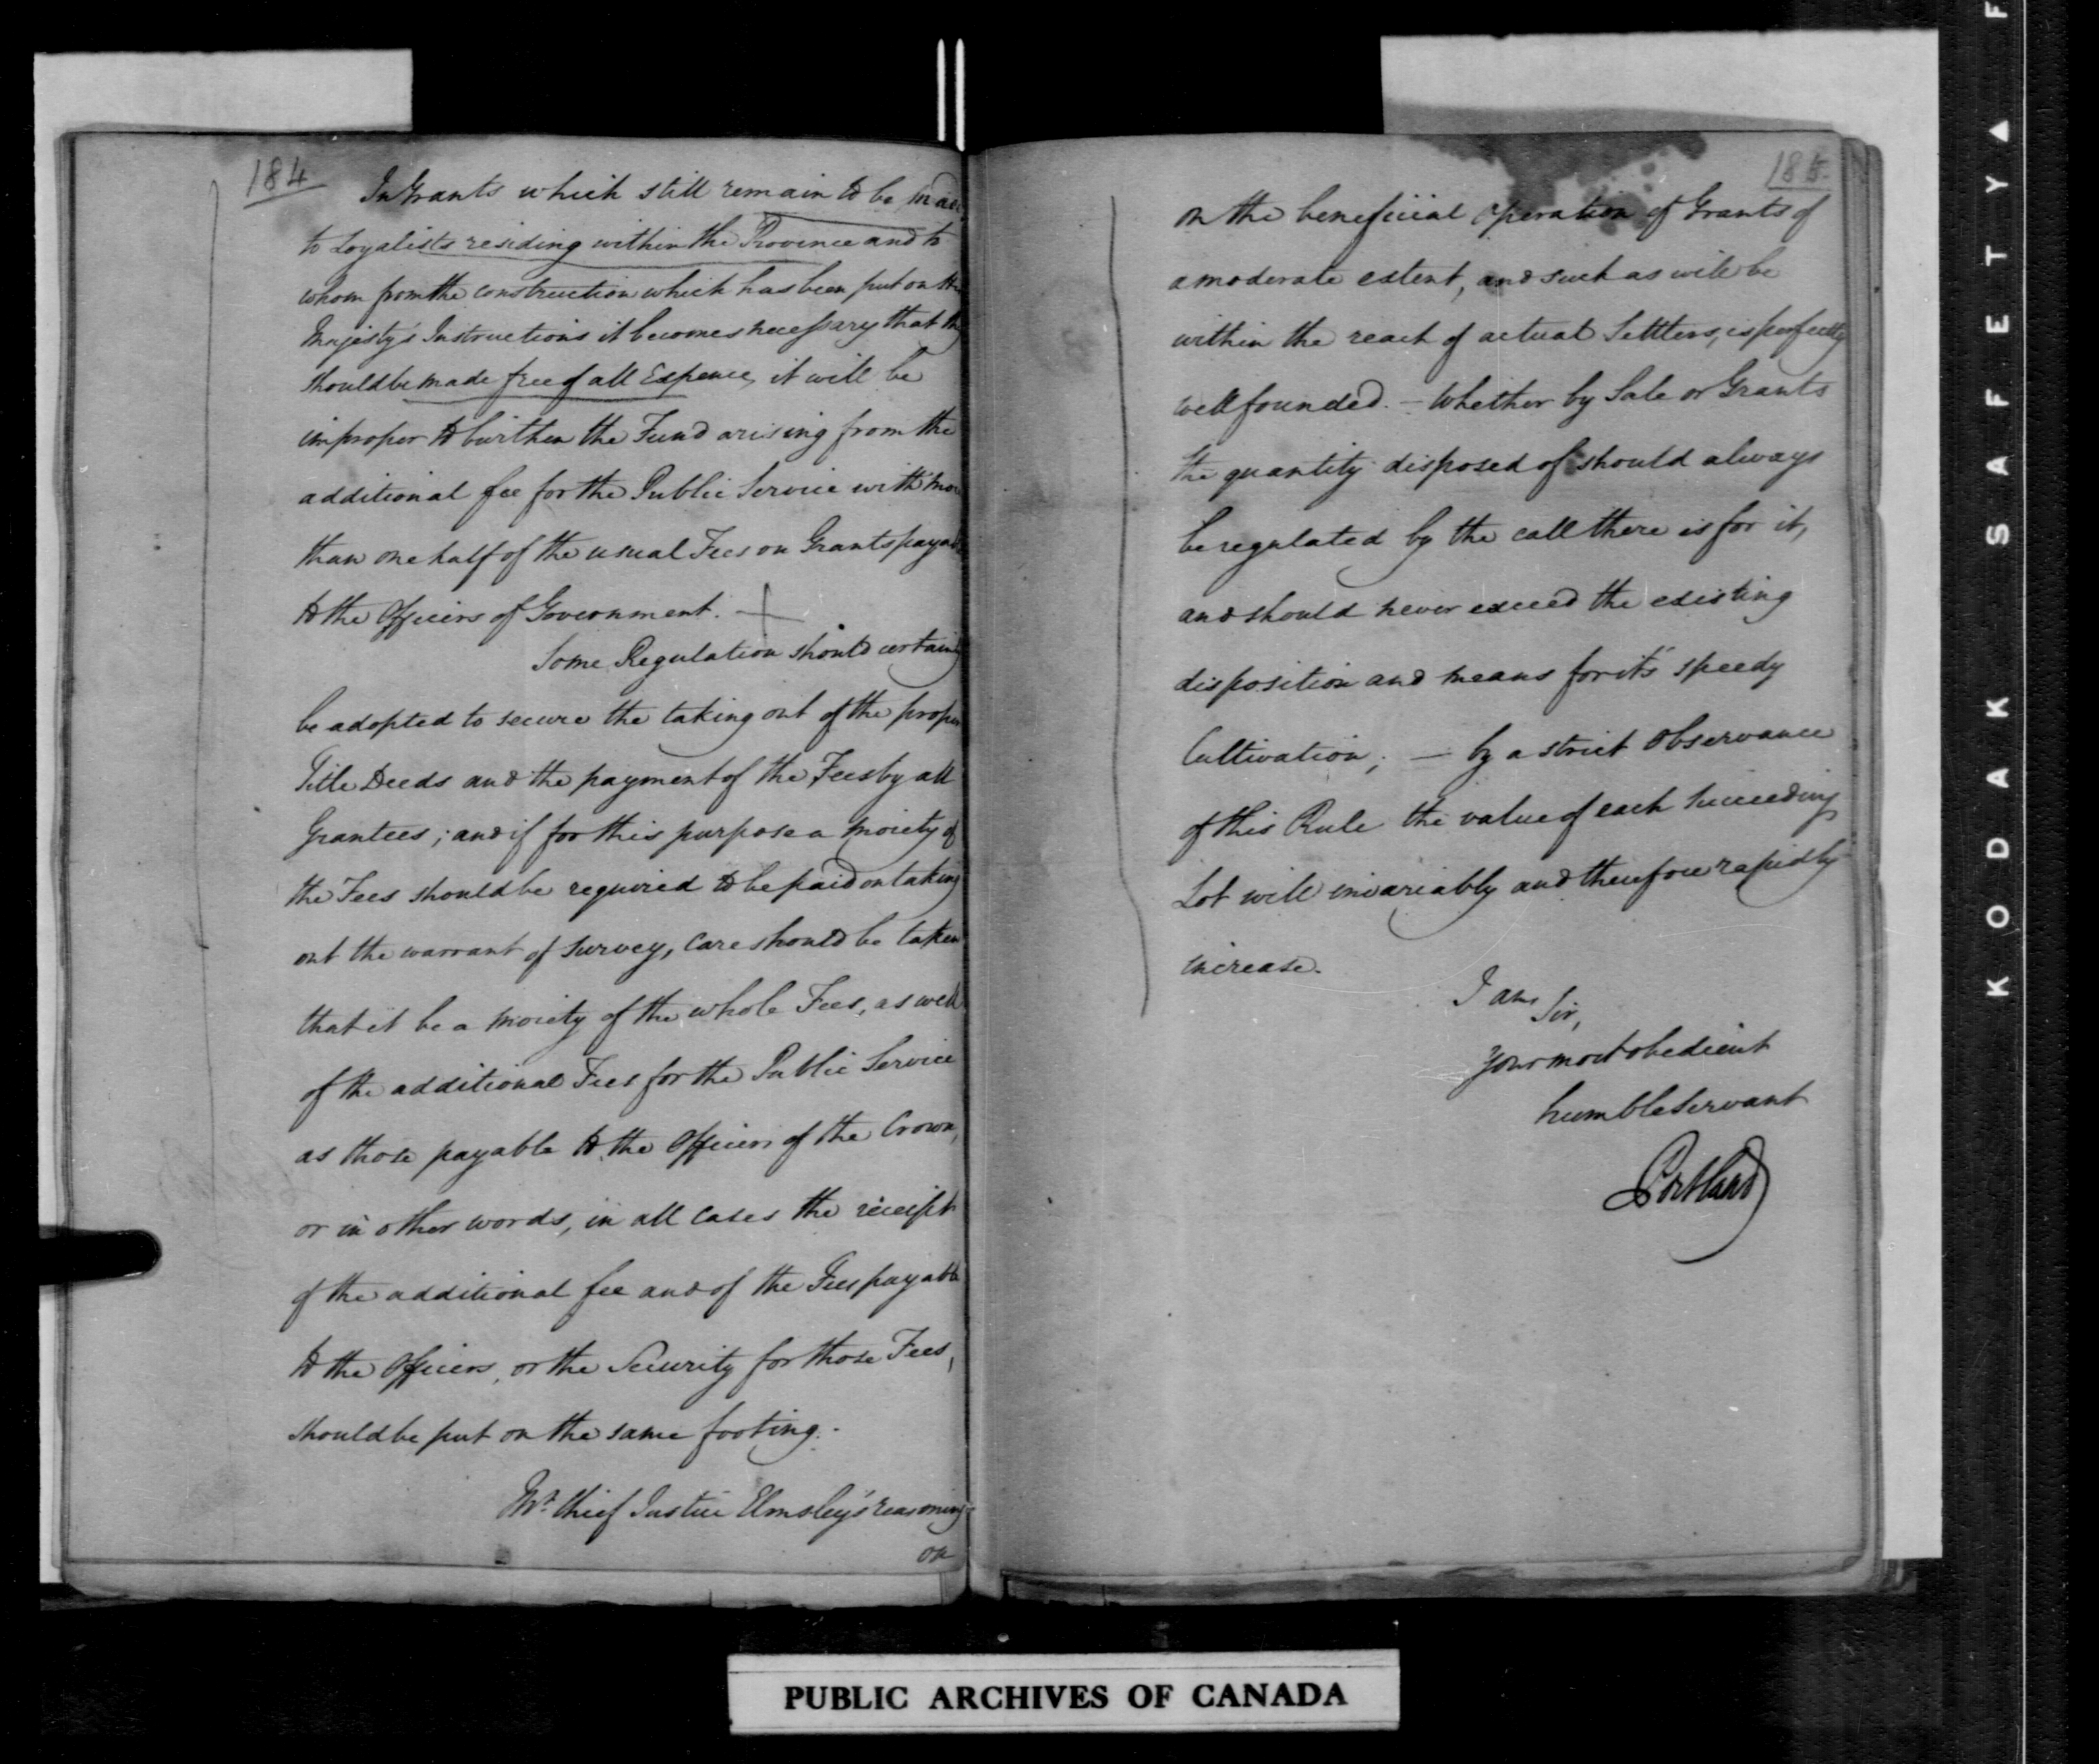 184
In Grants which still remain to be made
to Loyalists residing within the Province and to
whom from the construction which has been put on His
Majesty's Instructions it becomes necessary that they
should be made free of all Expence, it will be
improper to burthen the Fund arising from the
additional fee for the Public Service with more
than one half of the usual Fees on Grants payable
to the Officers of Government. +
Some Regulation should certainly
be adopted to secure the taking out of the proper
Title Deeds and the payment of the Fees by all
Grantees; and if for this purpose a moiety of
the Fees should be required to be paid on taking
out the warrant of survey, care should be taken
that it be a moiety of the whole Fees, as well
of the additional Fees for the Public Service
as those payable to the Officers of the Crown,
or in other words, in all cases the receipt
of the additional fee and of the Fees payable
to the Officers, or the Security for those Fees,
should be put on the same footing.
Mr. Chief Justice Elmsley's reasoning
on
185.
on the beneficial operation of Grants of
a moderate extent, and such as will be
within the reach of actual Settlers, is perfectly
well founded. - Whether by Sale or Grants
the quantity disposed of should always
be regulated by the call there is for it,
and should never exceed the existing
disposition and means for it's speedy
Cultivation; — by a strict observance
of this Rule the value of each succeeding
Lot will invariably and therefore rapidly
increase.
I am
Sir,
Your most obedient
humble Servant
Portland
PUBLIC ARCHIVES OF CANADA
KODAK SAFETY ▲ F